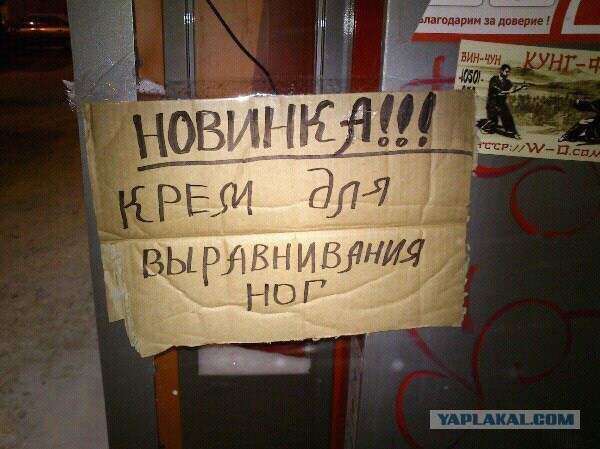 Благодарим за доверие !
ВИН-ЧУН КУНГ-Ф
НОВИНКА!!!
КРЕМ ДЛЯ
ВЫРАВНИВАНИЯ
НОГ
YAPLAKAL.COM